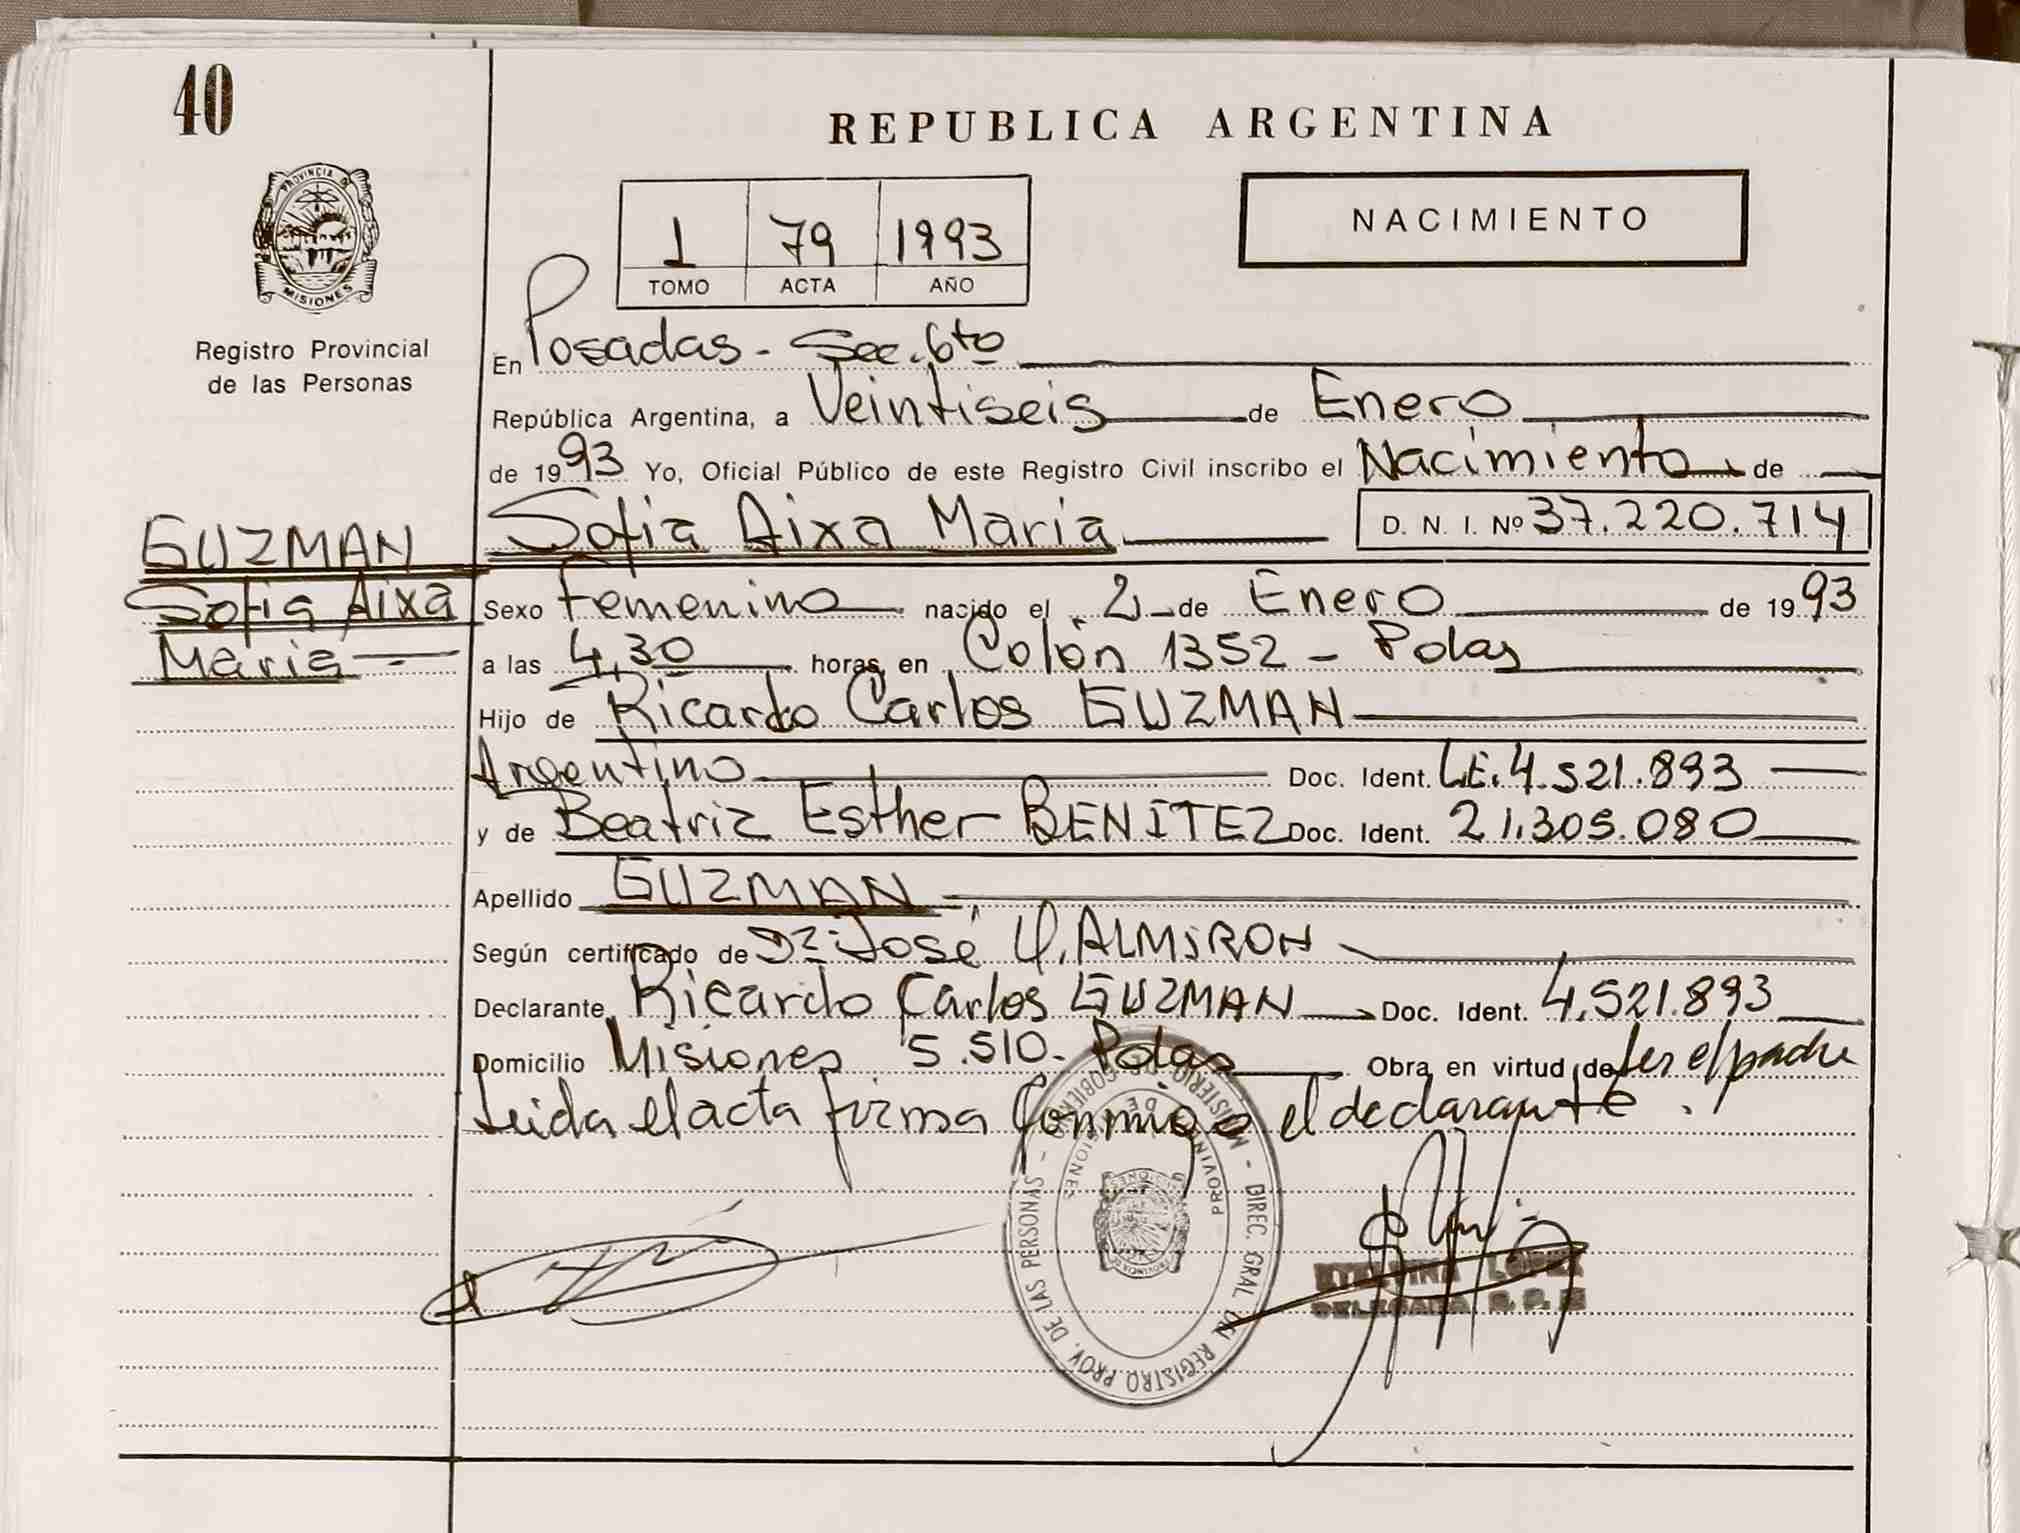 40
REPUBLICA ARGENTINA
PROVINCIA DE
MISIONES
Registro Provincial
de las Personas
NACIMIENTO
1 79 1993
TOMO ACTA AÑO
En Posadas - Sec. 6to
República Argentina, a Veintiseis de Enero
de 1993 Yo, Oficial Público de este Registro Civil inscribo el Nacimiento de
Sofia Aixa Maria D. N. I. Nº 37.220.714
GUZMAN
Sofia Aixa
Maria
Sexo Femenino nacido el 2 de Enero de 1993
a las 4,30 horas, en Colón 1352 - Pdas
Hijo de Ricardo Carlos GUZMAN
Argentino Doc. Ident. LE. 4.521.893
y de Beatriz Esther BENITEZ Doc. Ident. 21.305.080
Apellido GUZMAN
Según certificado de Dr. José ALMIRON
Declarante Ricardo Carlos GUZMAN Doc. Ident. 4.521.893
Domicilio Misiones 5.510 - Pdas Obra en virtud de ser el padre
Leida el acta firma conmigo el declarante.
MINISTERIO DE GOBIERNO - DIREC. GRAL. DEL REGISTRO PROV. DE LAS PERSONAS -
PROVINCIA DE MISIONES
LOPEZ
DELEGADA